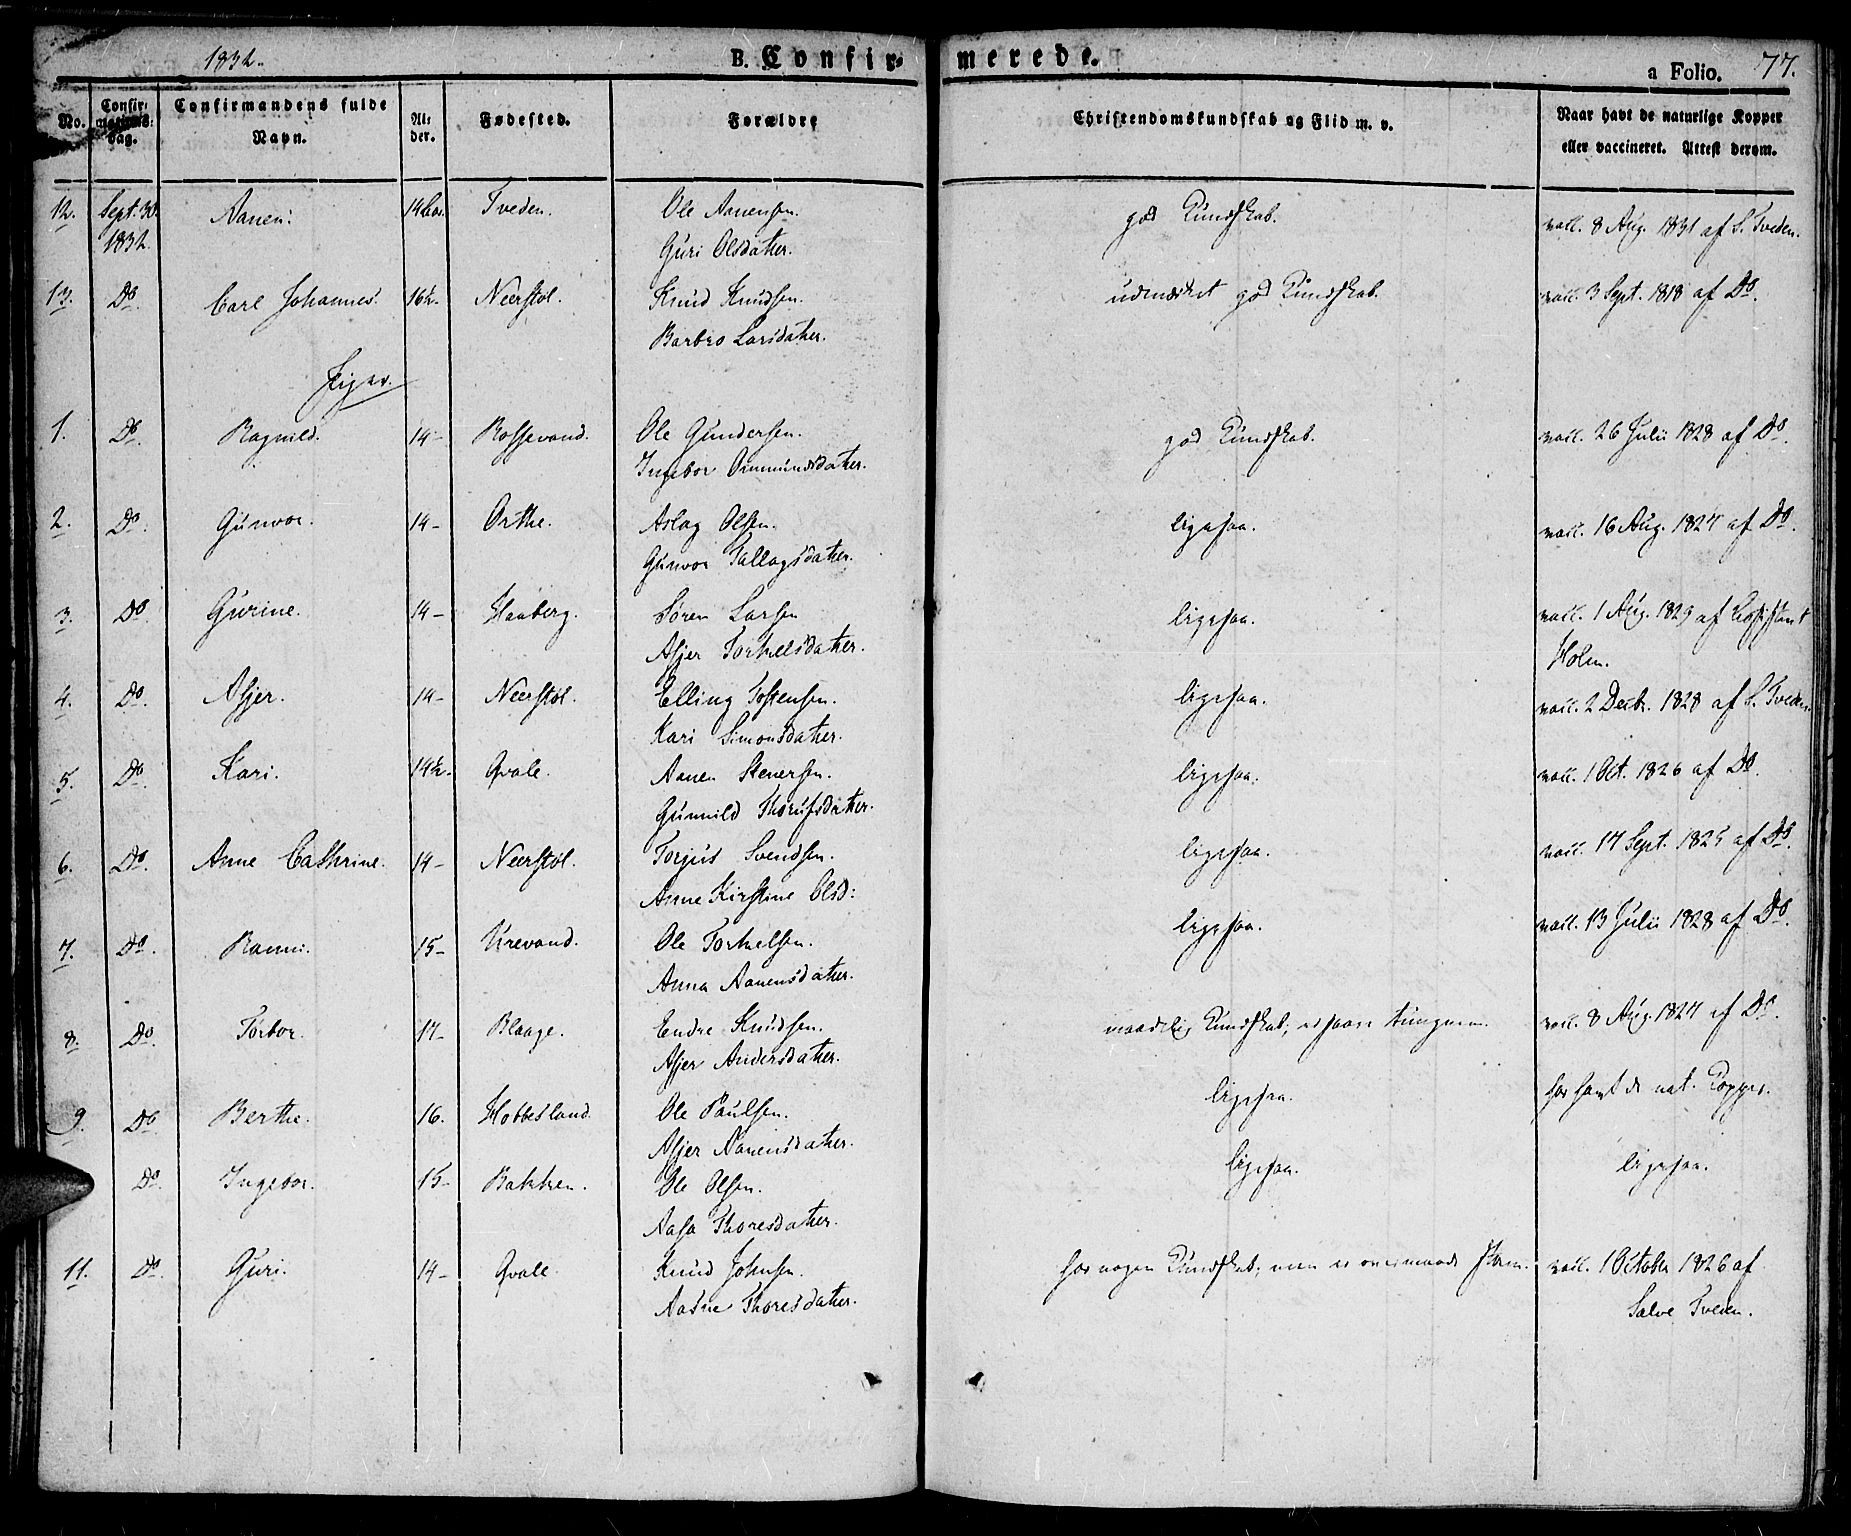 1832.
B. Confirmerede.
a Folio. 77.
No. Confirmations: dag. Confirmandens fulde Navn. Alder. Fødested. Forældre Christendomskundskab og Flid m. v. Naar havt de naturlige Kopper eller vaccineret. Attest derom.
12. Sept. 30. 1832. Aanen. Tveden. Ole Aanensen. god Kundskab. vacc. 8 Aug. 1831 af S. Tveden.
Guri Olsdatter.
13. Do Carl Johannes. 16½. Neerstøl. Knud Knudsen. udmærket god Kundskab. vacc. 3 Sept. 1818 af Do.
Barbro Larsdatter.
Piger.
1. Do. Ragnild. 14- Rossevand. Ole Gundersen. god Kundskab. vacc. 26 Julii 1828 af Do.
Ingebor Ommundsdatter.
2. Do. Gunvor. 14- Orthe. Aslag Olsen. ligesaa. vacc. 16 Aug. 1827 af Do.
Gunvor Tallagsdatter.
3. Do. Gurine. 14- Haaberg. Søren Larsen ligesaa. vacc. 1 Aug. 1829 af Assistent
Asjer Torkelsdatter. Holm.
4. Do. Asjer. 14- Neerstøl. Elling Tostensen. ligesaa. vacc. 2 Decbr. 1828 af S. Tveden.
Kari Simonsdatter.
5. Do. Kari. 14½. Qvale. Aanen Stenersen. ligesaa. vacc. 1 Oct. 1826 af Do
Gunnild Thorufsdatter.
6. Do. Anne Cathrine. 14- Neerstøl. Torjus Svendsen. ligesaa. vacc. 17 Sept. 1825 af Do.
Anne Kirstine Olsd:
7. Do. Ranni. 15- Krevand. Ole Torkelsen. ligesaa. vacc. 13 Julii 1828 af Do.
Anna Aanensdatter.
8. Do. Torbor. 17- Blaage. Endre Knudsen. maadelig Kundskab; vacc. 8 Aug. 1827 af Do.
Asjer Andersdatter.
9. Do. Berthe. 16. Hobbesland. Ole Paulsen. ligesaa. har havt de nat. Kopper.
Asjer Aanensdatter.
Do. Ingebor. 15- Bakken. Ole Olsen. ligesaa. ligesaa.
Aasa Thoresdatter.
11. Do. Guri. 14- Qvale. Knud Johnsen. har nogen Kundskab; men er overmaade vacc. 1 October 1826 af
Aasne Thoresdatter. Salve Tveden.